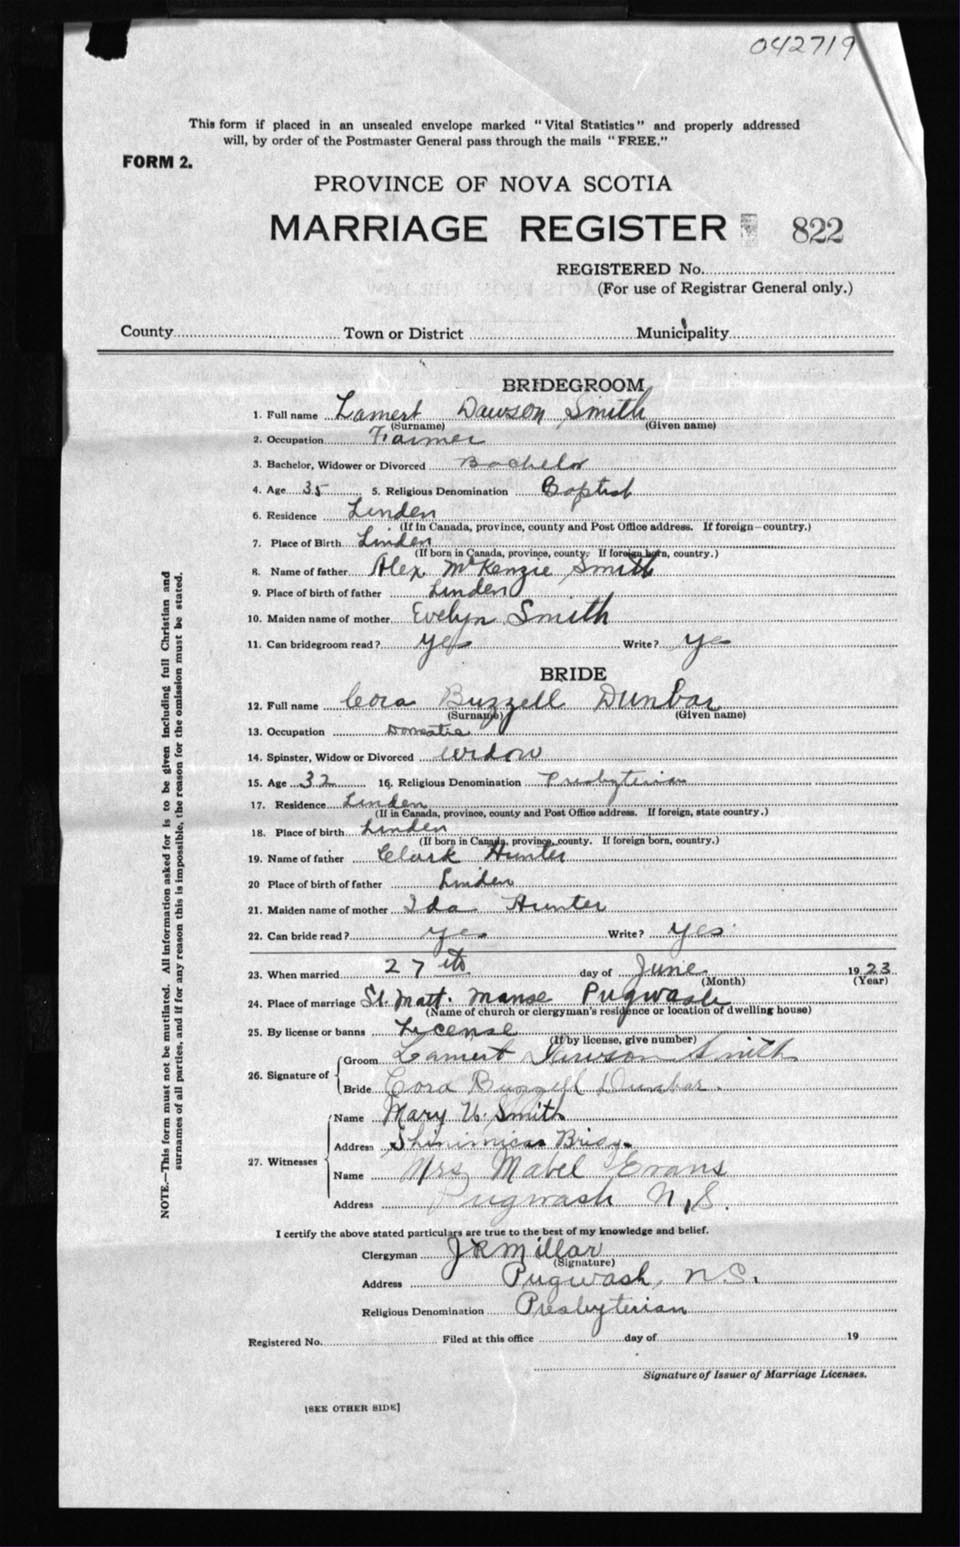 042719
This form if placed in an unsealed envelope marked "Vital Statistics" and properly addressed
will, by order of the Postmaster General pass through the mails "FREE."
FORM 2.
PROVINCE OF NOVA SCOTIA
MARRIAGE REGISTER 822
REGISTERED No.
(For use of Registrar General only.)
County Town or District Municipality
BRIDEGROOM
1. Full name Lamert Dawson Smith
(Surname) (Given name)
2. Occupation Farmer
3. Bachelor, Widower or Divorced Bachelor
4. Age 35 5. Religious Denomination Baptist
6. Residence Linden
(If in Canada, province, county and Post Office address. If foreign—country.)
7. Place of Birth Linden
(If born in Canada, province, county. If foreign born, country.)
8. Name of father Alex McKenzie Smith
9. Place of birth of father Linden
10. Maiden name of mother Evelyn Smith
11. Can bridegroom read? yes Write? Yes
BRIDE
12. Full name Cora Buzzell Dunbar
(Surname) (Given name)
13. Occupation Domestic
14. Spinster, Widow or Divorced Widow
15. Age 32 16. Religious Denomination Presbyterian
17. Residence Linden
(If in Canada, province, county and Post Office address. If foreign, state country.)
18. Place of birth Linden
(If born in Canada, province, county. If foreign born, country.)
19. Name of father Clark Hunter
20 Place of birth of father Linden
21. Maiden name of mother Ida Hunter
22. Can bride read? yes Write? yes
23. When married 27th day of June 1923
(Month) (Year)
24. Place of marriage St. Matt. Manse Pugwash
(Name of church or clergyman's residence or location of dwelling house)
25. By license or banns License
(If by license, give number)
26. Signature of Groom Lamert Dawson Smith
Bride Cora Buzzell Dunbar.
27. Witnesses Name Mary U. Smith
Address Shinimicas Bridge
Name Mrs Mabel Evans
Address Pugwash N.S.
I certify the above stated particulars are true to the best of my knowledge and belief.
Clergyman J R Millar
(Signature)
Address Pugwash, N.S.
Religious Denomination Presbyterian
Registered No. Filed at this office day of 19
Signature of Issuer of Marriage Licenses.
[SEE OTHER SIDE]
NOTE.—This form must not be mutilated. All information asked for is to be given including full Christian and
surnames of all parties, and if for any reason this is impossible, the reason for the omission must be stated.